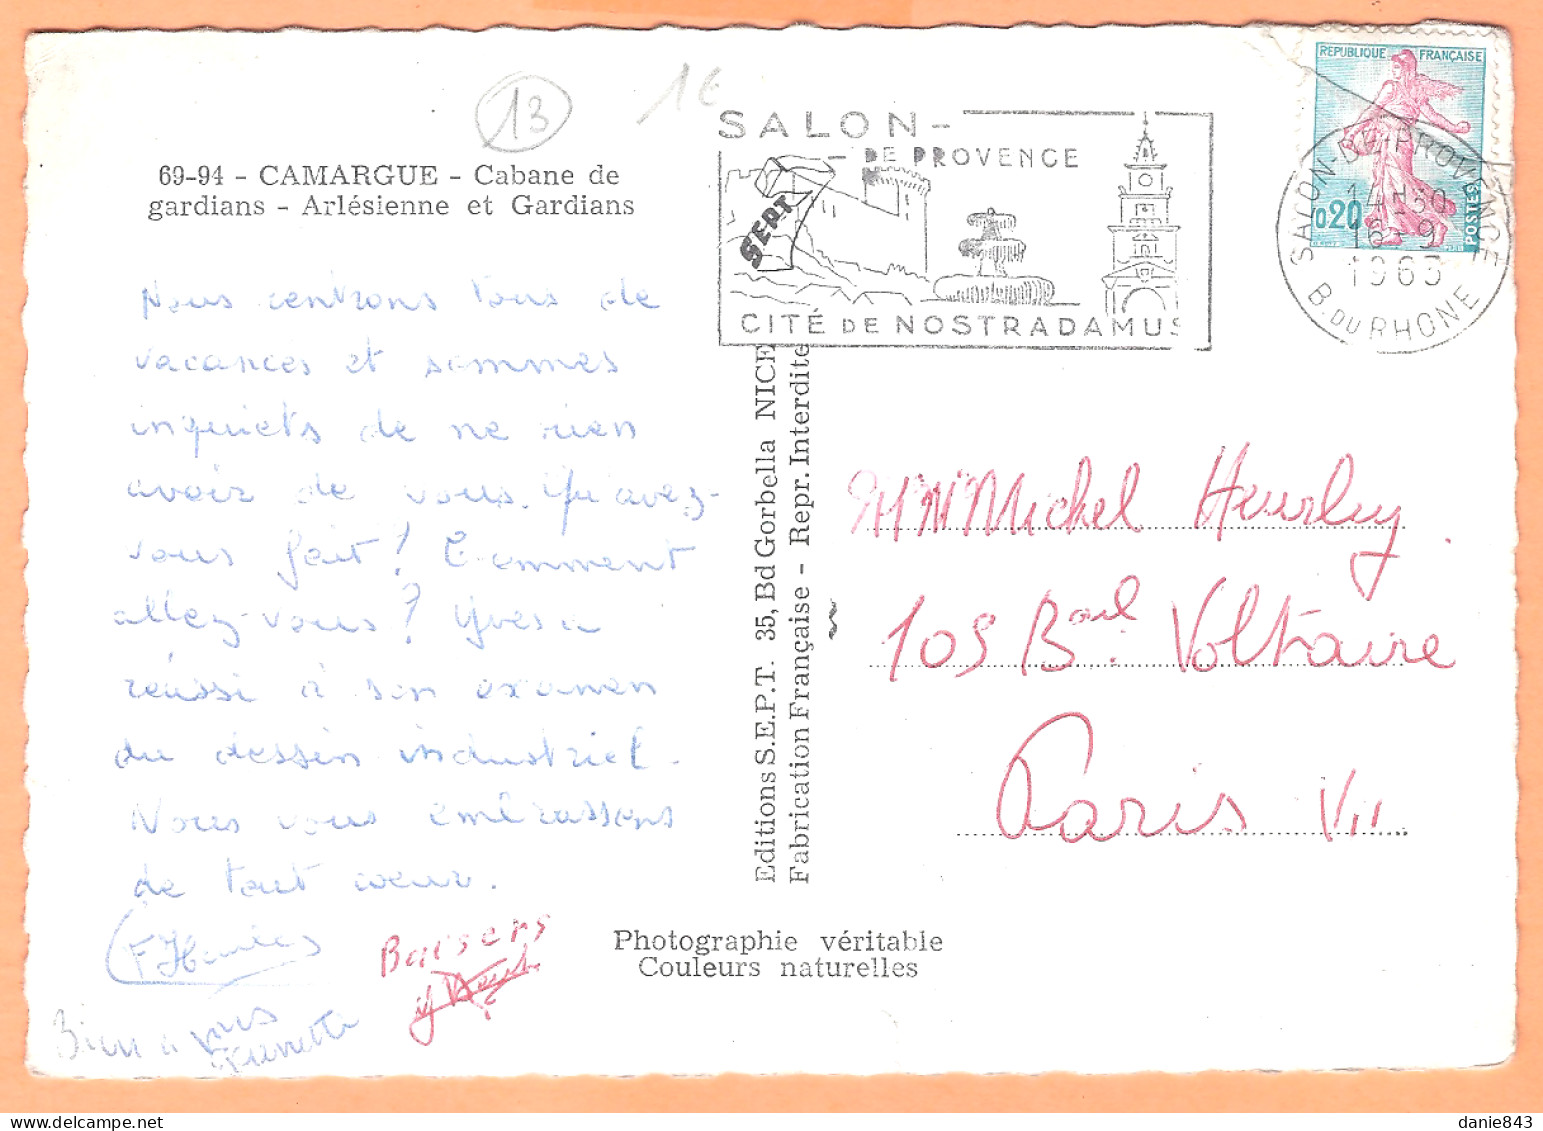 13
16
69-94 - CAMARGUE - Cabane de
gardians - Arlésienne et Gardians
Nous rentrons tous de
vacances et sommes
inquiets de ne rien
avoir de vous. Qu'avez-
vous fait! Comment
allez-vous? Yves a
réussi à son examen
du dessin industriel.
Nous vous embrassons
de tout cœur.
Baisers
Bien à vous
SALON-
DE PROVENCE
SEPT
CITÉ DE NOSTRADAMUS
REPUBLIQUE FRANÇAISE
0,20
POSTES
SALON-DE-PROVENCE
14H30
16-9
1963
B. DU RHONE
Editions S.E.P.T. 35, Bd Gorbella NICE
Fabrication Française - Repr. Interdite
Photographie véritable
Couleurs naturelles
Michel
109 Boul. Voltaire
Paris VII
danie843